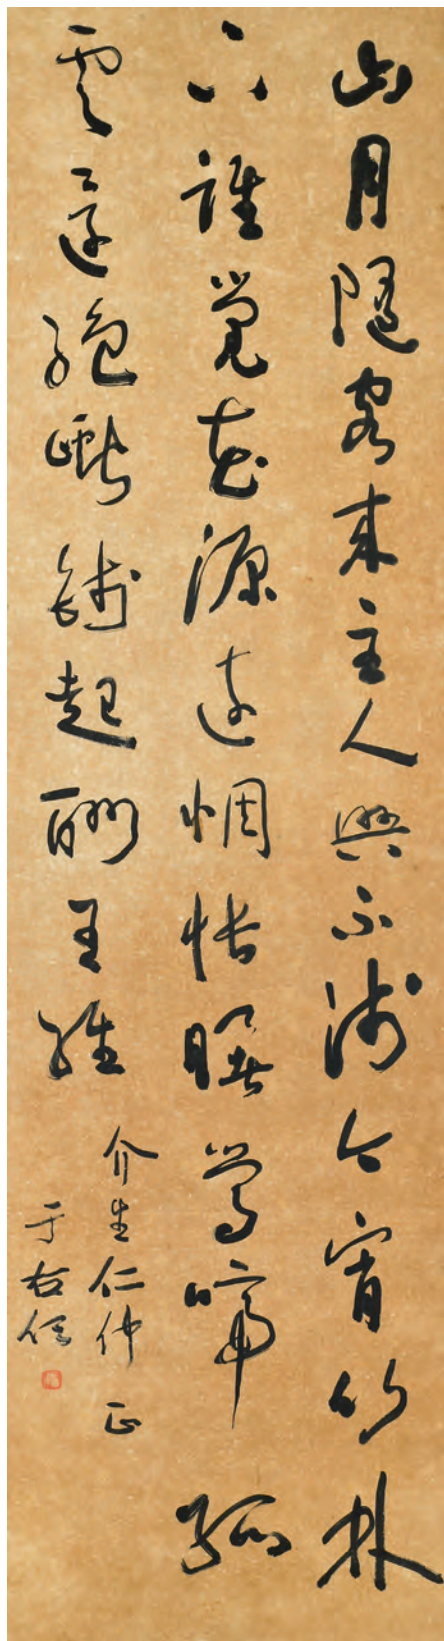 山月隨客來主人興不淺今宵竹林
下誰覺花源遠惆悵曙鶯啼孤
雲還絕巘錢起酬王維
介生仁仲正
于右任